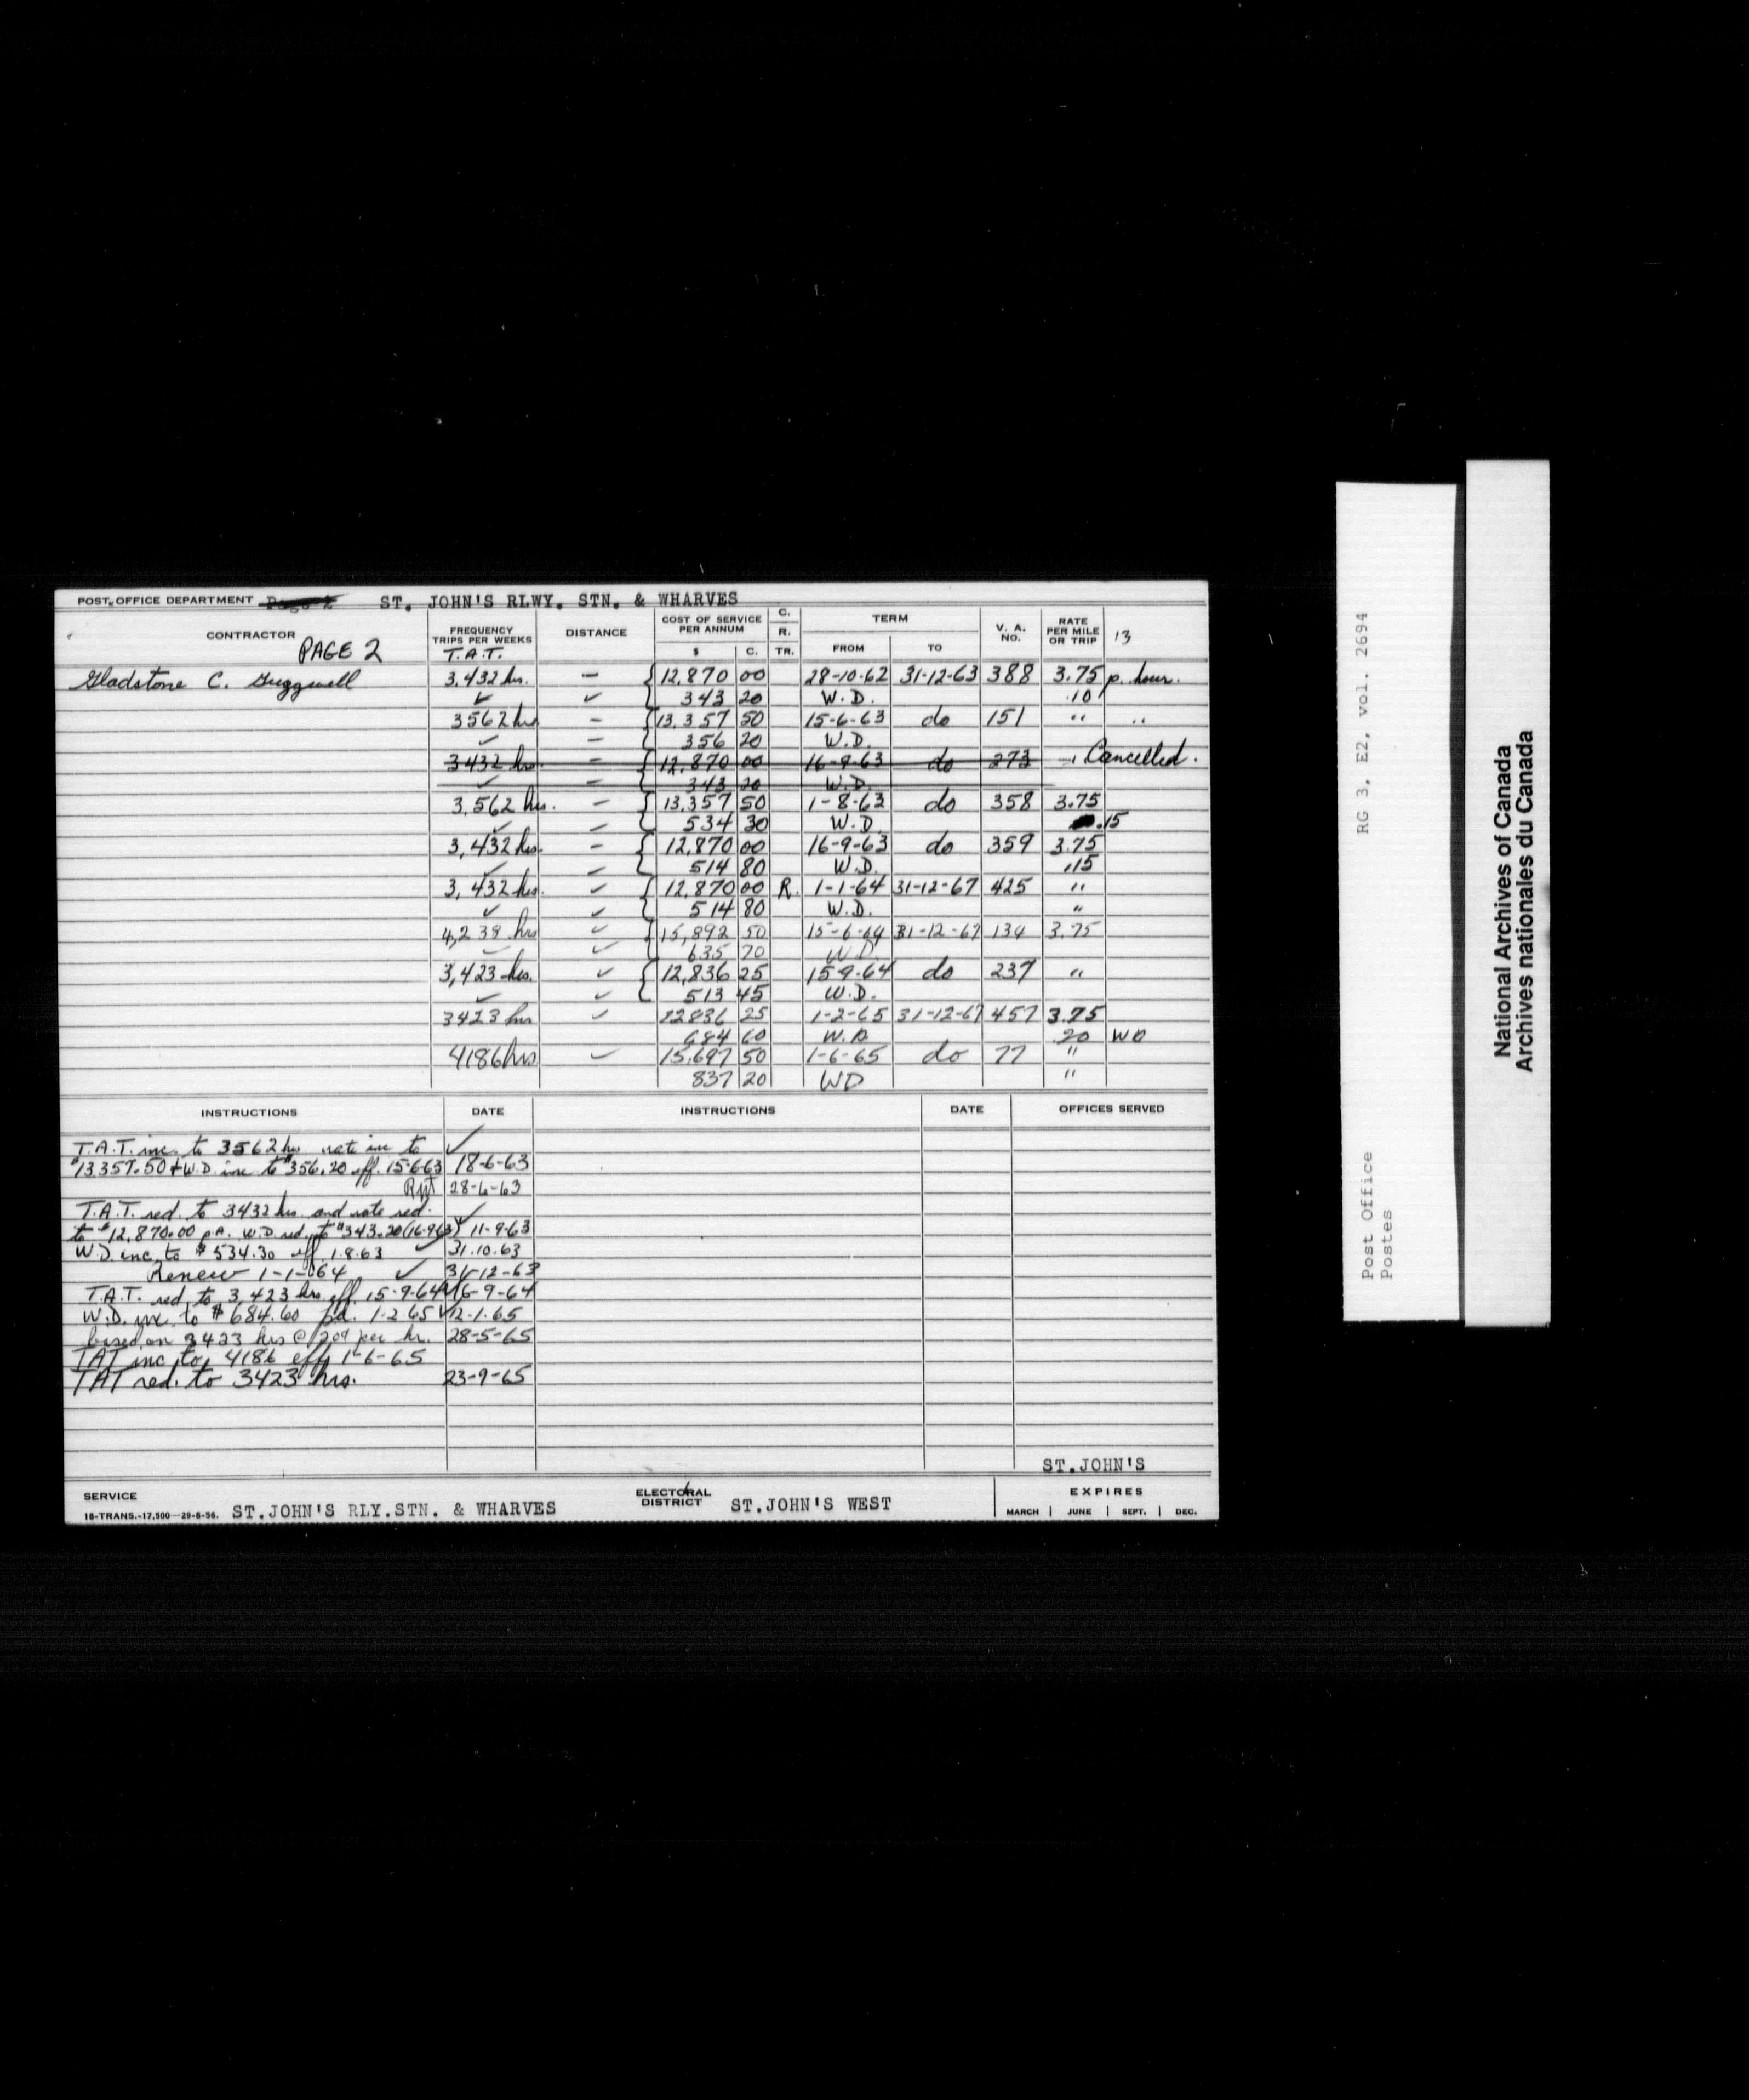 POST OFFICE DEPARTMENT Page 2 ST. JOHN'S RLWY. STN. & WHARVES
CONTRACTOR PAGE 2 FREQUENCY TRIPS PER WEEKS T.A.T. DISTANCE COST OF SERVICE PER ANNUM $ C. C. R. TR. TERM FROM TO V. A. NO. RATE PER MILE OR TRIP 13
Gladstone C. 3,432 hrs. — 12,870 00 28-10-62 31-12-63 388 3.75 p. hour.
✓ ✓ 343 20 W.D. .10
3562 hrs — 13,357 50 15-6-63 do 151 " "
✓ — 356 20 W.D.
3432 hrs. — 12,870 00 16-9-63 do 273 " Cancelled.
✓ — 343 20 W.D.
3,562 hrs. — 13,357 50 1-8-63 do 358 3.75
✓ — 534 30 W.D. .15
3,432 hrs. — 12,870 00 16-9-63 do 359 3.75
✓ — 514 80 W.D. .15
3,432 hrs. ✓ 12,870 00 R. 1-1-64 31-12-67 425 "
✓ ✓ 514 80 W.D. "
4,238 hrs ✓ 15,892 50 15-6-64 31-12-67 134 3.75
✓ ✓ 635 70 W.D.
3,423 hrs. ✓ 12,836 25 15-9-64 do 237 "
✓ ✓ 513 45 W.D.
3423 hrs ✓ 12836 25 1-2-65 31-12-67 457 3.75
684 60 W.D. 20 WD
4186 hrs ✓ 15,697 50 1-6-65 do 77 "
837 20 WD "
INSTRUCTIONS DATE INSTRUCTIONS DATE OFFICES SERVED
T.A.T. inc. to 3562 hrs rate inc to ✓
$13357.50 + W.D. inc to $356.20 eff. 15-6-63 18-6-63
28-6-63
T.A.T. red. to 3432 hrs. and rate red. ✓
to $12,870.00 p.A. W.D. red. to $343.20 (16-9-63) 11-9-63
W.D. inc. to $534.30 eff 1.8.63 ✓ 31.10.63
Renew 1-1-64 ✓ 31-12-63
T.A.T. red. to 3,423 hrs. eff. 15-9-64 ✓ 16-9-64
W.D. inc. to $684.60 1-2-65 ✓ 12-1-65
based on 3423 hrs @ 20¢ per hr. 28-5-65
TAT inc. to 4186 eff 1-6-65
TAT red. to 3423 hrs. 23-9-65
ST.JOHN'S
SERVICE ST.JOHN'S RLY.STN. & WHARVES ELECTORAL DISTRICT ST.JOHN'S WEST EXPIRES
18-TRANS.-17,500—29-8-56. MARCH JUNE SEPT. DEC.
Post Office RG 3, E2, vol. 2694
Postes
National Archives of Canada
Archives nationales du Canada